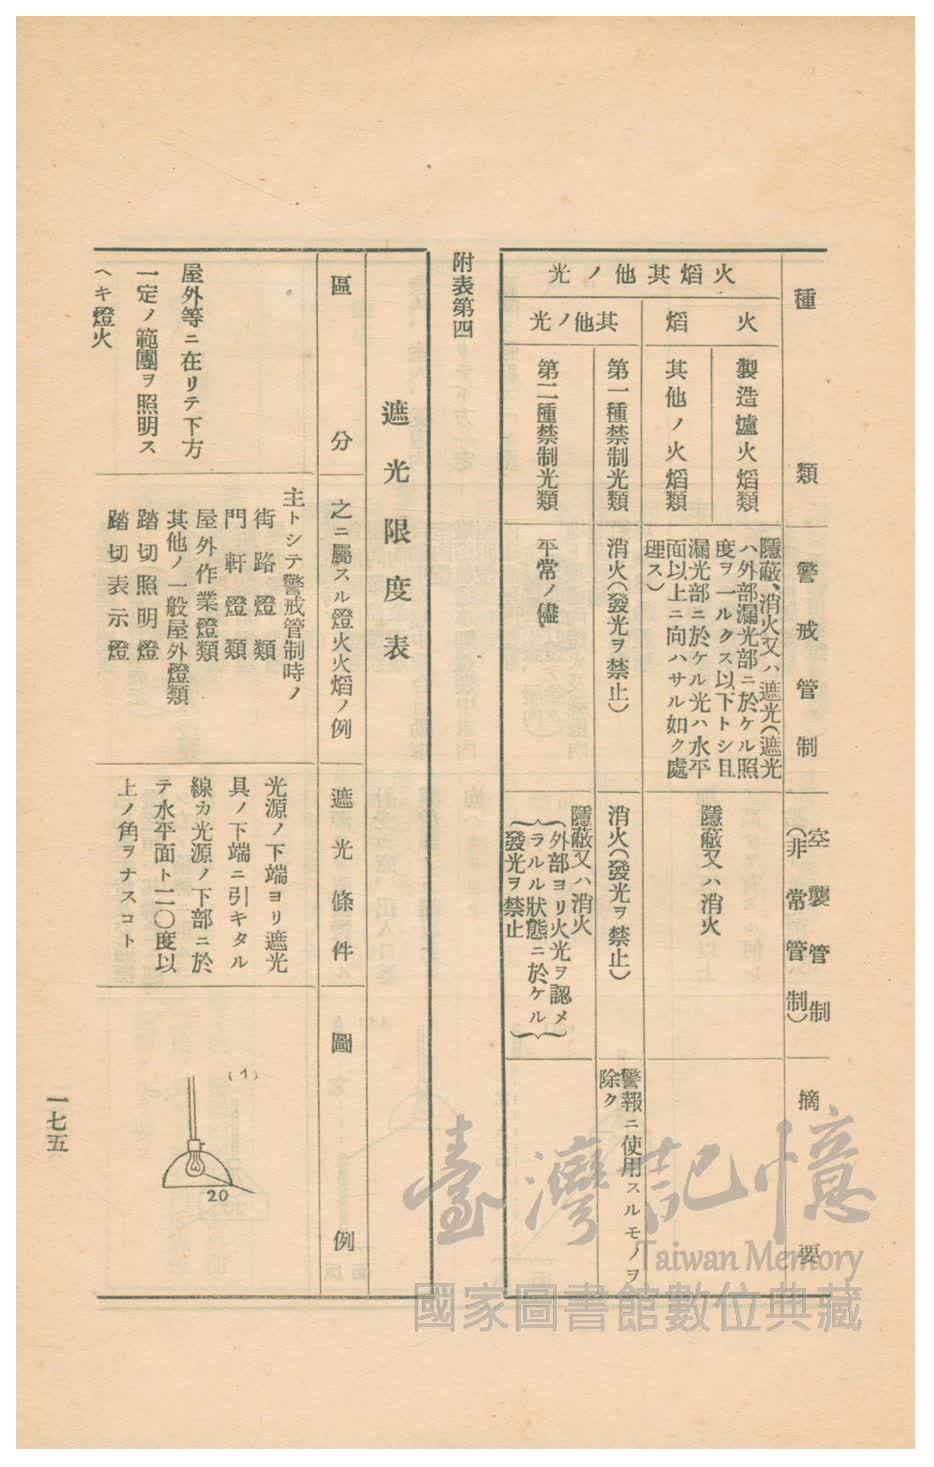 種類
警戒管制
空襲管制
（非常管制）
摘要
火焰其他ノ光
火焰
製造爐火焰類
隱蔽、消火又ハ遮光（遮光
ハ外部漏光部ニ於ケル照
度ヲ一ルクス以下トシ且
漏光部ニ於ケル光ハ水平
面以上ニ向ハサル如ク處
理ス）
隱蔽又ハ消火
其他ノ火焰類
其他ノ光
第一種禁制光類
消火（發光ヲ禁止）
消火（發光ヲ禁止）
警報ニ使用スルモノヲ
除ク
第二種禁制光類
平常ノ儘
隱蔽又ハ消火
（外部ヨリ火光ヲ認メ
ラルル狀態ニ於ケル
發光ヲ禁止）
附表第四
遮光限度表
區分
之ニ屬スル燈火火焰ノ例
遮光條件
圖例
屋外等ニ在リテ下方
一定ノ範圍ヲ照明ス
ヘキ燈火
主トシテ警戒管制時ノ
街路燈類
門軒燈類
屋外作業燈類
其他ノ一般屋外燈類
踏切照明燈
踏切表示燈
光源ノ下端ヨリ遮光
具ノ下端ニ引キタル
線カ光源ノ下部ニ於
テ水平面ト二〇度以
上ノ角ヲナスコト
(1)
20
一七五
臺灣記憶
Taiwan Memory
國家圖書館數位典藏